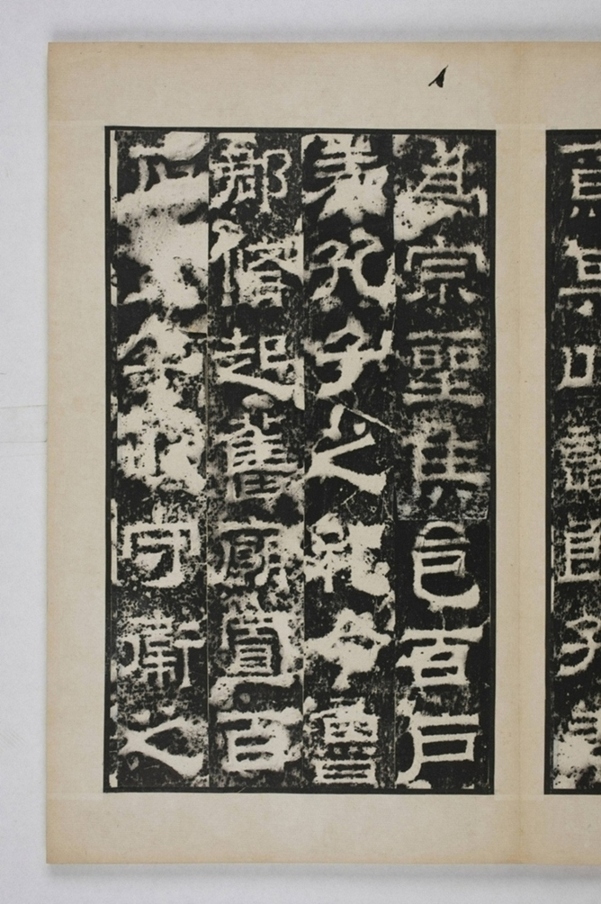 焉其以議郎孔羨
為宗聖侯邑百戶
奉孔子之祀令魯
郡脩起舊廟置百
石吏卒以守衛之